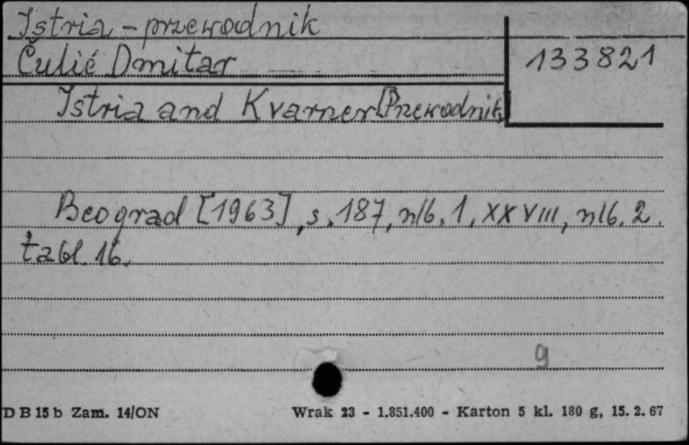 Istria - przewodnik
Čulić Dmitar
133821
Istria and Kvarner [Przewodnik]
Beograd [1963], s. 187, nlb. 1, XXVIII, nlb. 2.
tabl. 16.
9
D B 15 b Zam. 14/ON
Wrak 23 - 1.851.400 - Karton 5 kl. 180 g, 15. 2. 67